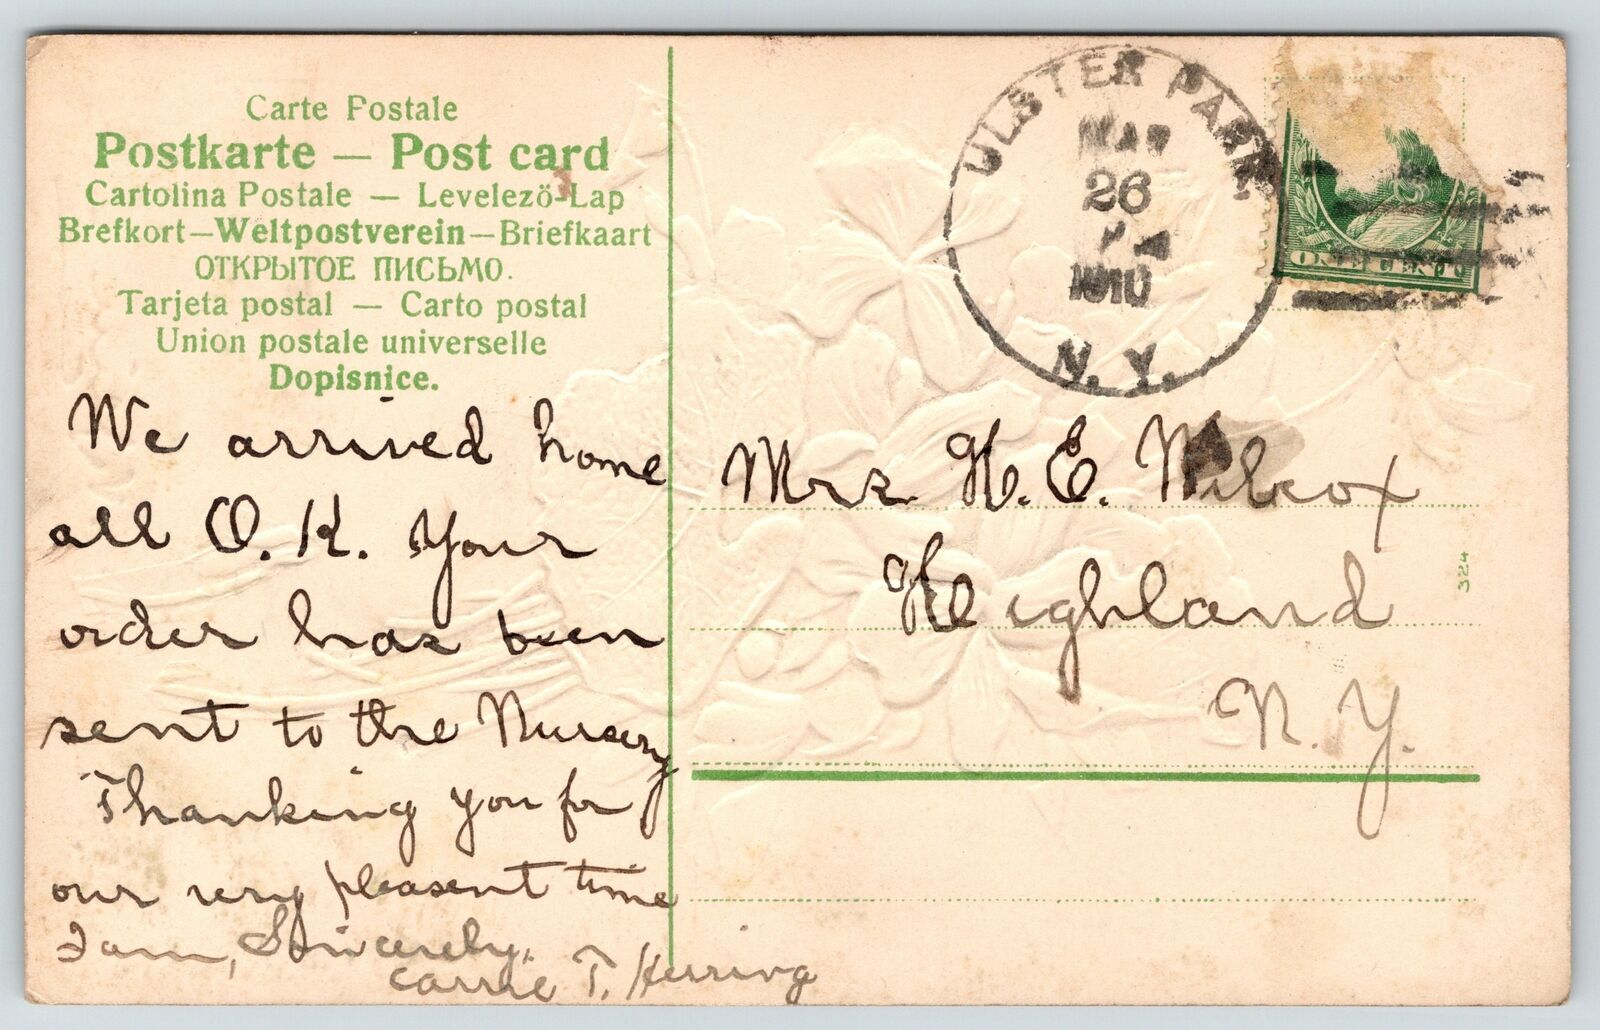 Carte Postale
Postkarte — Post card
Cartolina Postale — Levelezö-Lap
Brefkort—Weltpostverein—Briefkaart
ОТКРЫТОЕ ПИСЬМО.
Tarjeta postal — Carto postal
Union postale universelle
Dopisnice.
We arrived home
all O.K. Your
order has been
sent to the Nursery
Thanking you for
our very pleasent time
I am, Sincerely,
Carrie T. Herring
ULSTER PARK,
MAR
26
1910
N. Y.
ONE CENT
Mrs. H. E. Wilcox
Highland
N. Y.
324